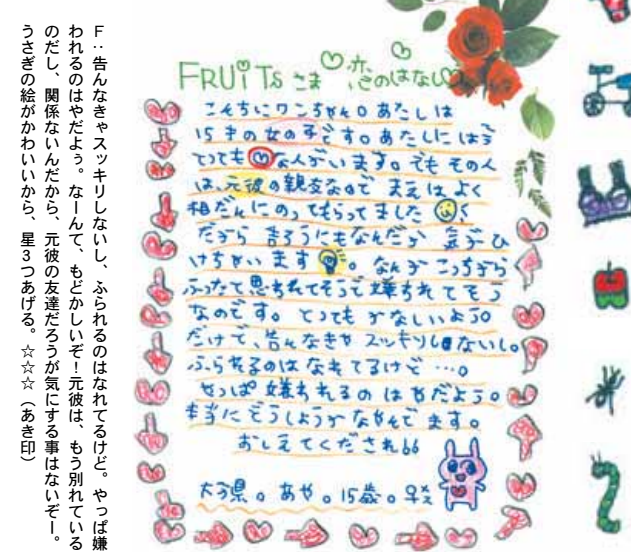 FRUiTs さま♡恋のはなし♡
こんちにワンちゃん。あたしは
15才の女の子です。あたしには今
とっても♡な人がいます。でも その人
は、元彼の親友なので まえは よく
相だんにのってもらってました
だから 告ろうにもなんだか 気がひ
けちゃいます。なんか こっちから
ふったって思われてそうで嫌われてそう
なのです。とっても かなしいよう。
だけど、告んなきゃ スッキリしないし。
ふられるのは なれてるけど…。
やっぱ 嫌われるのは やだよう。
本当に どうしようか なやんでます。
おしえてくだされ
大分県。あや。15歳。♀
F:告んなきゃスッキリしないし、ふられるのはなれてるけど。やっぱ嫌
われるのはやだよぅ。なーんて、もどかしいぞ!元彼は、もう別れている
のだし、関係ないんだから、元彼の友達だろうが気にする事はないぞー。
うさぎの絵がかわいいから、星3つあげる。☆☆☆(あき印)